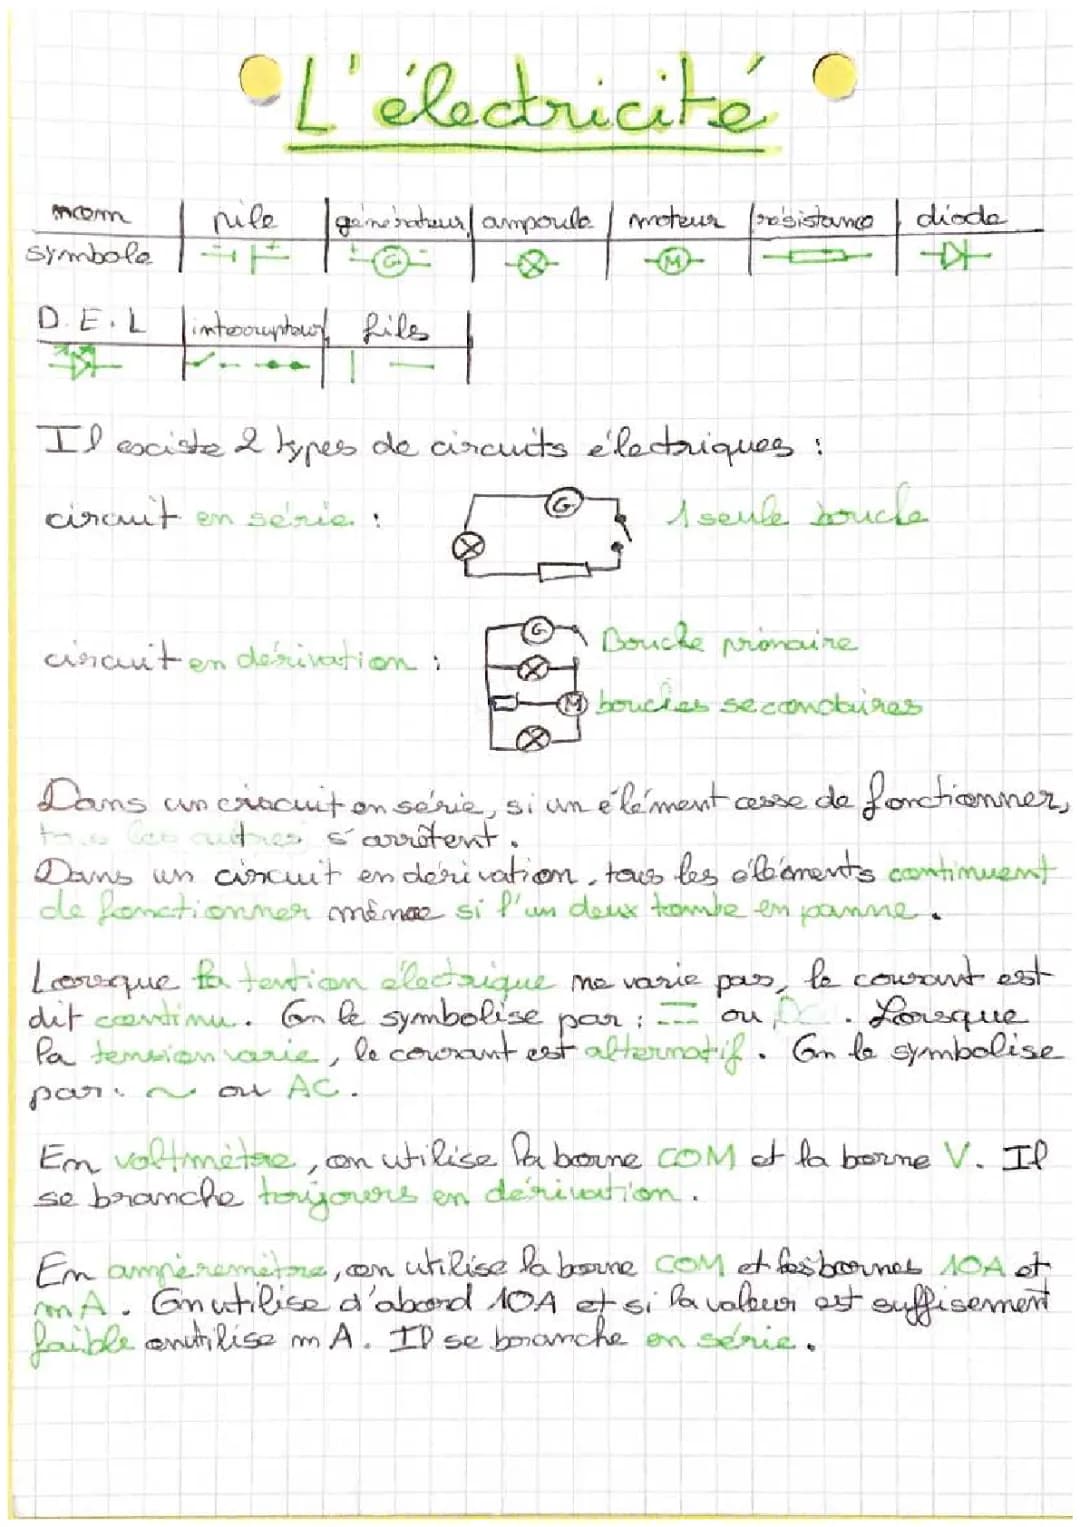 L'électricité
nom pile générateur ampoule moteur résistance diode
symbole - + G M
D.E.L interrupteur fils
Il existe 2 types de circuits électriques :
circuit en série : G 1 seule boucle
circuit en dérivation : G Boucle primaire
M boucles secondaires
Dans un circuit en série, si un élément cesse de fonctionner,
tous les autres s'arrêtent.
Dans un circuit en dérivation, tous les éléments continuent
de fonctionner même si l'un deux tombe en panne.
Lorsque la tention électrique ne varie pas, le courant est
dit continu. On le symbolise par : ⎓ ou DC. Lorsque
la tension varie, le courant est alternatif. On le symbolise
par : ~ ou AC.
En voltmètre, on utilise la borne COM et la borne V. Il
se branche toujours en dérivation.
En ampèremètre, on utilise la borne COM et les bornes 10A et
mA. On utilise d'abord 10A et si la valeur est suffisement
faible on utilise mA. Il se branche en série.